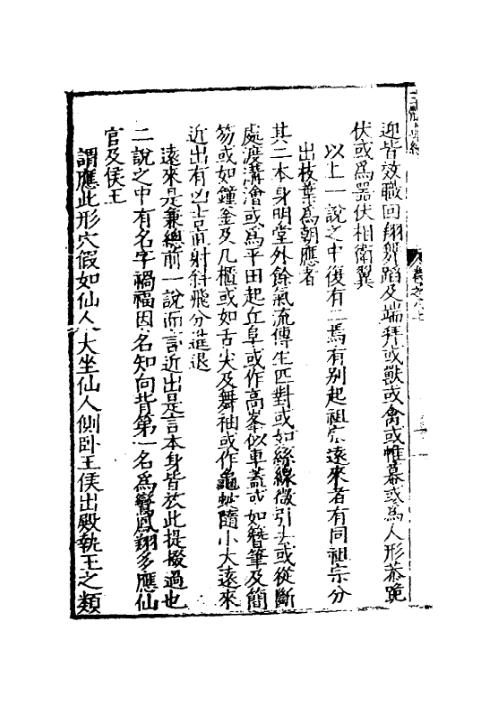 迎皆效職回翔舞蹈及端拜或獸或禽或帷幕或爲人形恭
伏或爲器伏相衛翼
以上一說之中復有二焉有别起祖宗遠來者有同祖宗分
出枝葉爲朝應者
其二本身明堂外餘氣流傳生匹對或如絲線微引去或從斷
處渡溝澮或爲平田起丘阜或作高峯似車蓋或如簪筆及簡
笏或如鐘釜及几櫃或如舌尖及舞袖或作龜蛇隨小大遠來
近出有凶吉前射斜飛分進退
遠來是兼總前一說而言近出是言本身皆於此提掇過也
二說之中有名字禍福因名知向背第一名爲鸞鳳翔多應仙
官及侯王
謂應此形穴假如仙人大坐仙人側卧王侯出殿執王之類